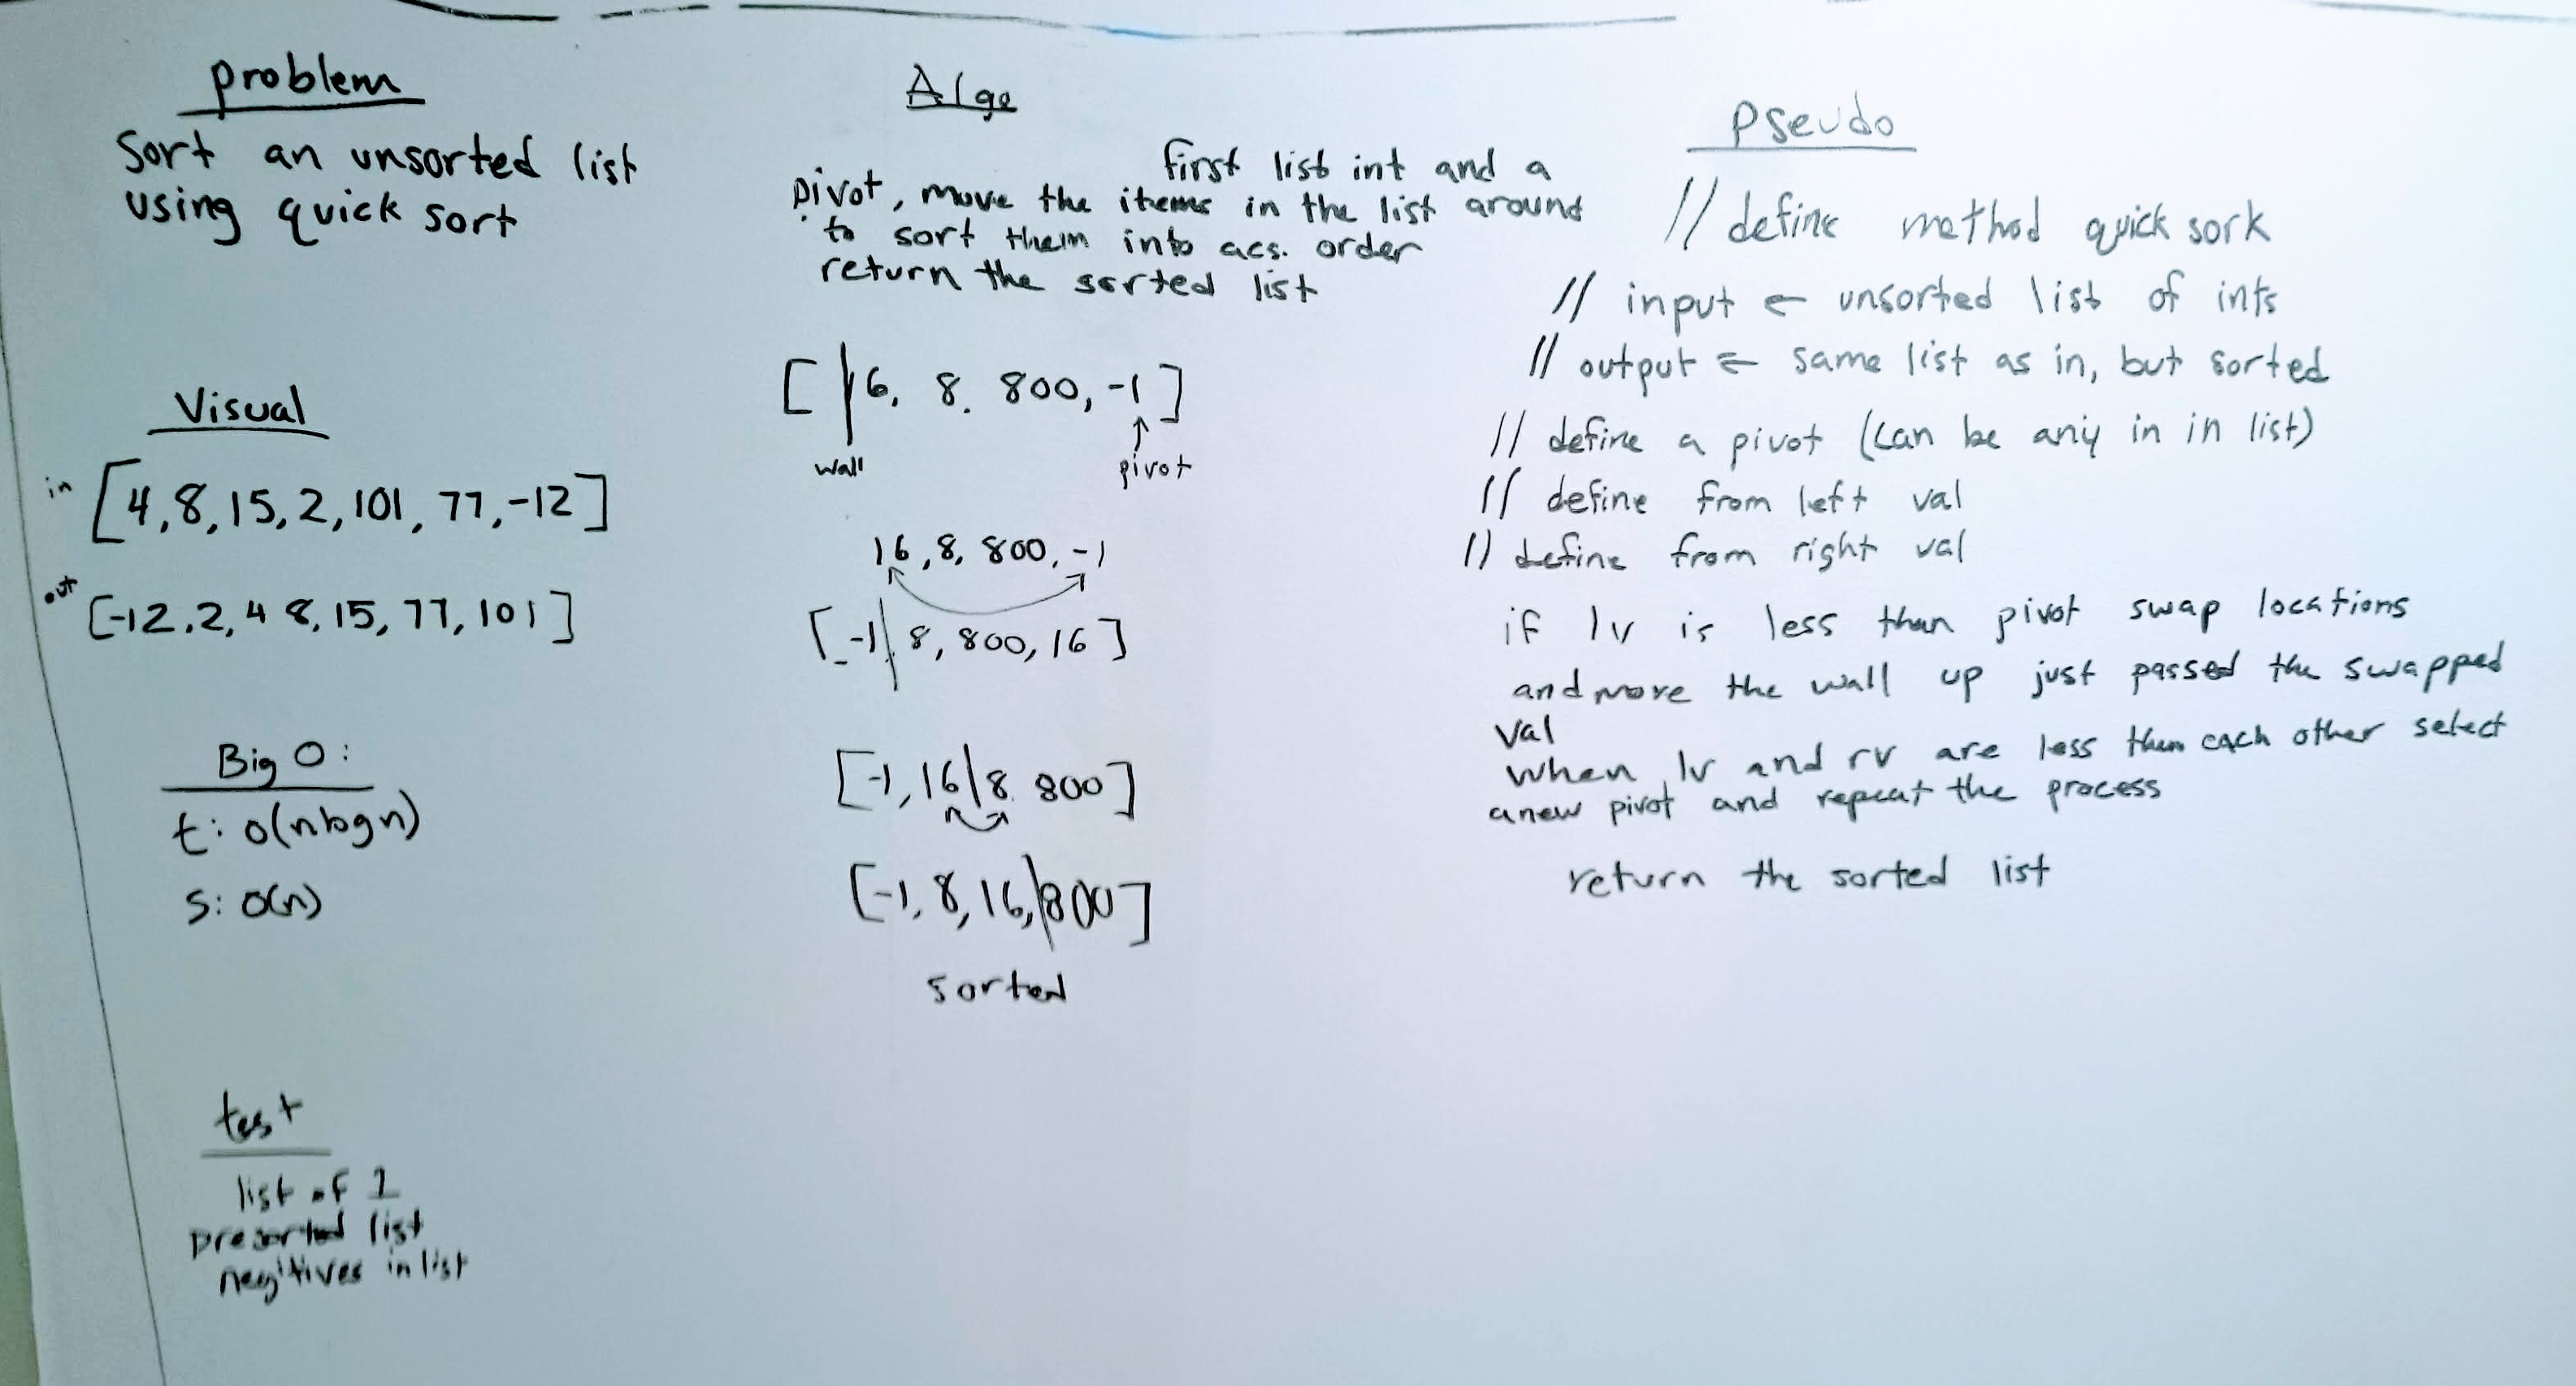 problem
Sort an unsorted list
using quick sort
Visual
in [4,8,15,2,101,77,-12]
out [-12,2,4 8,15,77,101]
Big O:
t: o(nlogn)
S: o(n)
test
list of 1
presorted list
negitives in list
Algo
first list int and a
pivot, move the items in the list around
to sort them into acs. order
return the sorted list
[ |16, 8, 800, -1]
wall pivot
16, 8, 800, -1
[-1| 8, 800, 16]
[-1, 16|8 800]
[-1, 8, 16,|800]
sorted
Pseudo
// define method quick sork
// input ← unsorted list of ints
// output ← same list as in, but sorted
// define a pivot (can be any in in list)
// define from left val
// define from right val
if lv is less than pivot swap locations
and move the wall up just passed the swapped
val
when lv and rv are less then each other select
a new pivot and repeat the process
return the sorted list